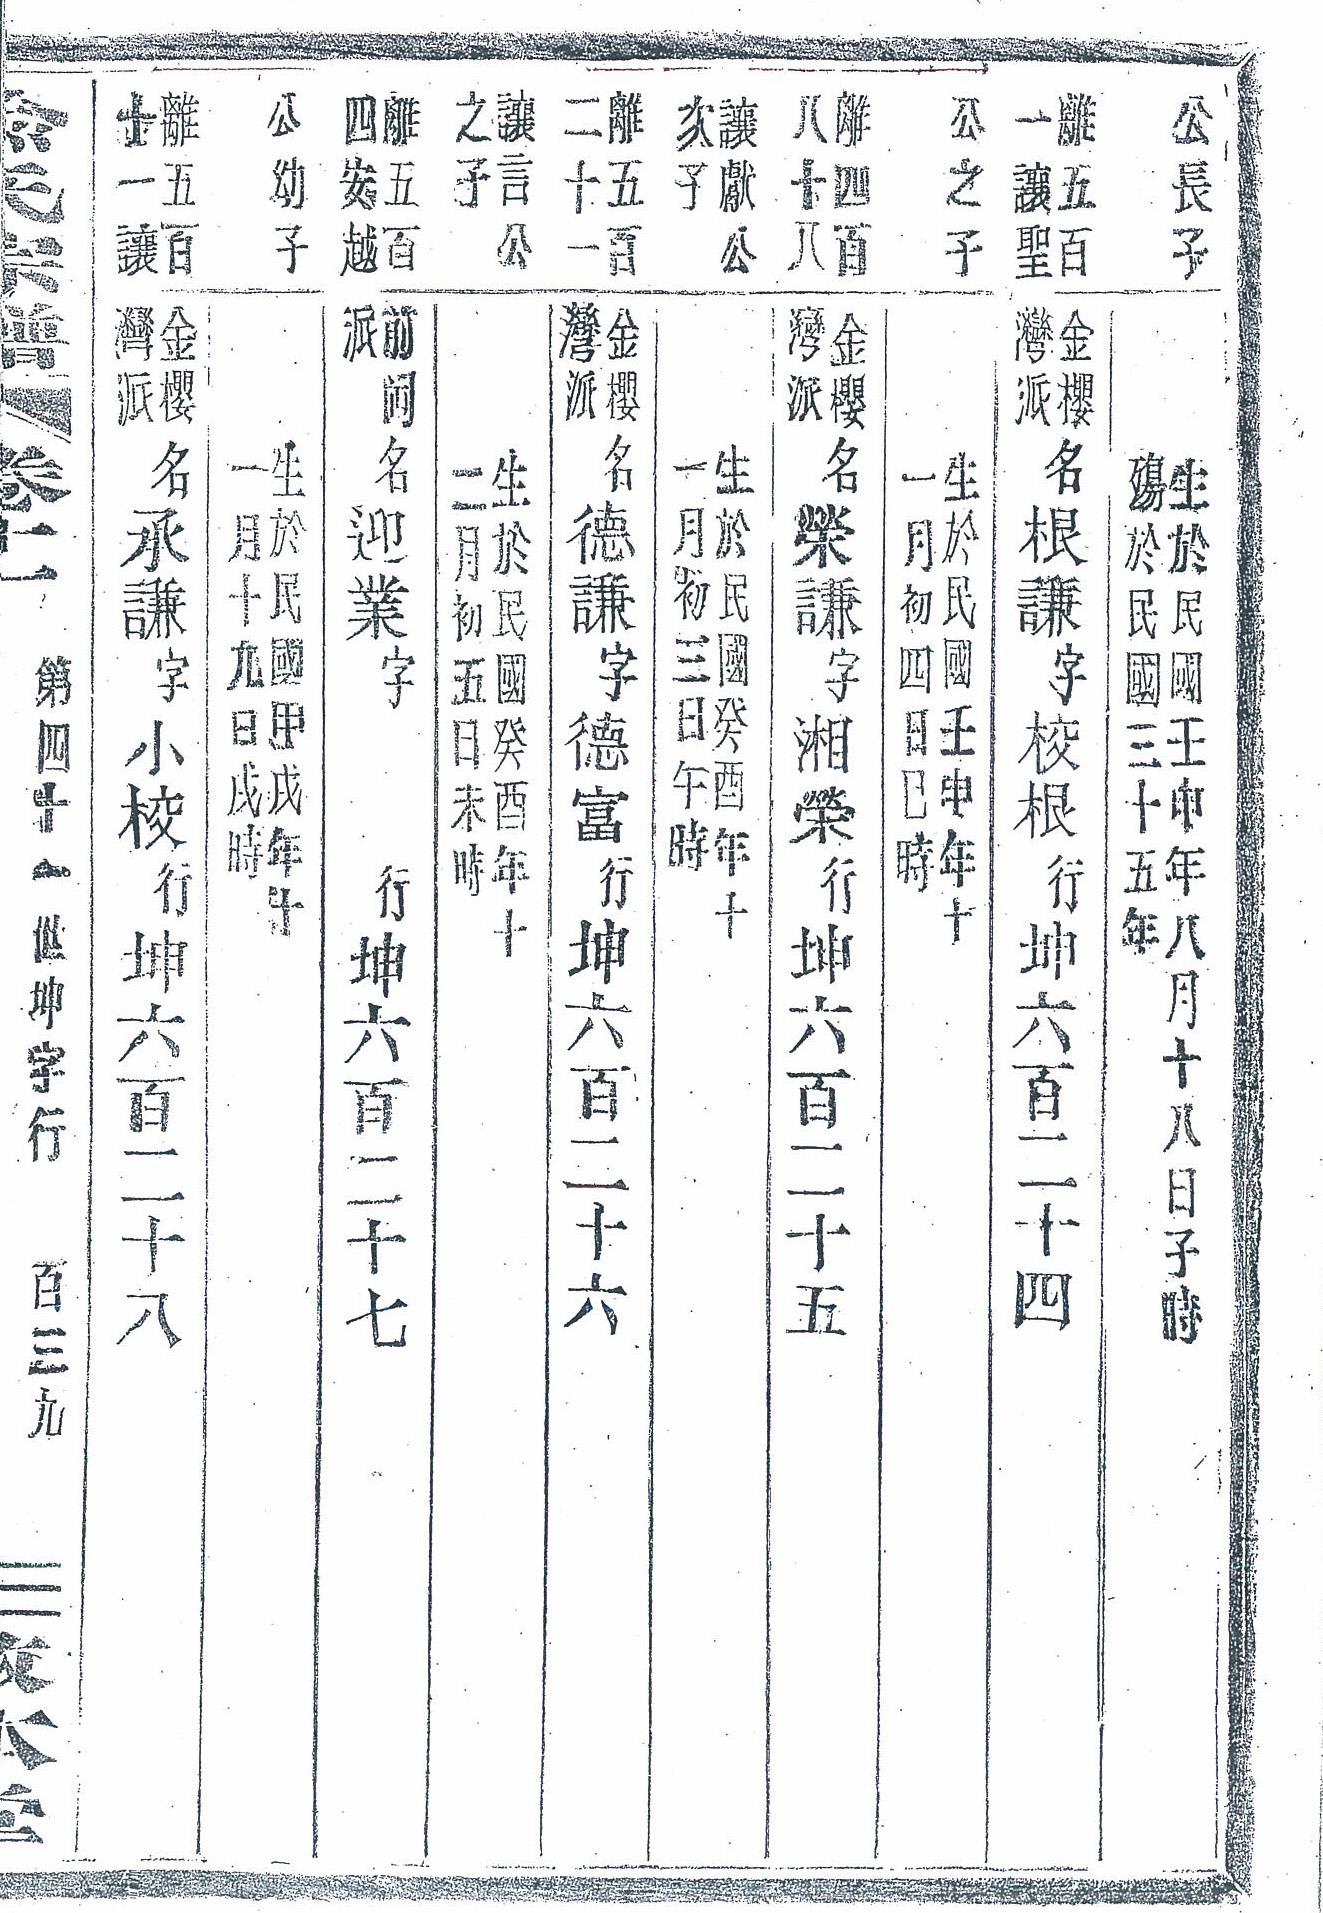 公長子
生於民國壬申年八月十八日子時
殤於民國三十五年
離五百
一讓聖
金櫻
灣派
名根謙字校根行坤六百二十四
公之子
生於民國壬申年十
一月初四日巳時
離四百
八十八
金櫻
灣派
名榮謙字湘榮行坤六百二十五
讓獻公
次子
生於民國癸酉年十
一月初三日午時
離五百
二十一
金櫻
灣派
名德謙字德富行坤六百二十六
讓言公
之子
生於民國癸酉年十
二月初五日未時
離五百
四安越
前間
派
名迎業字 行坤六百二十七
公幼子
生於民國甲戌年十
一月十九日戌時
離五百
十一讓
金櫻
灣派
名承謙字小梭行坤六百二十八
第四十一世坤字行 百三九